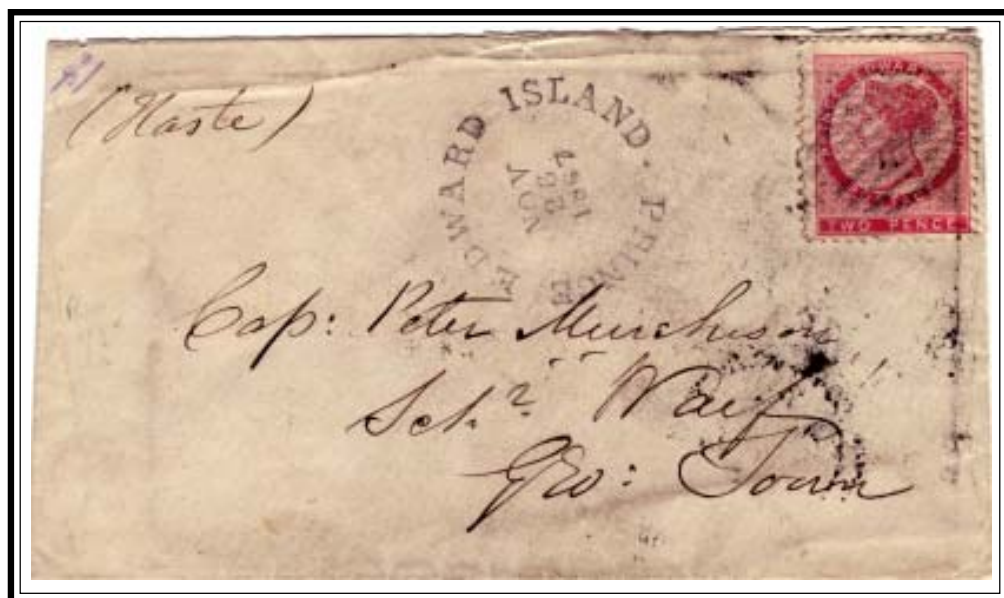 (Haste)
PRINCE EDWARD ISLAND.
NOV
TWO PENCE
Cap: Peter Murchison
Sch.r "Waif"
Geo: Town